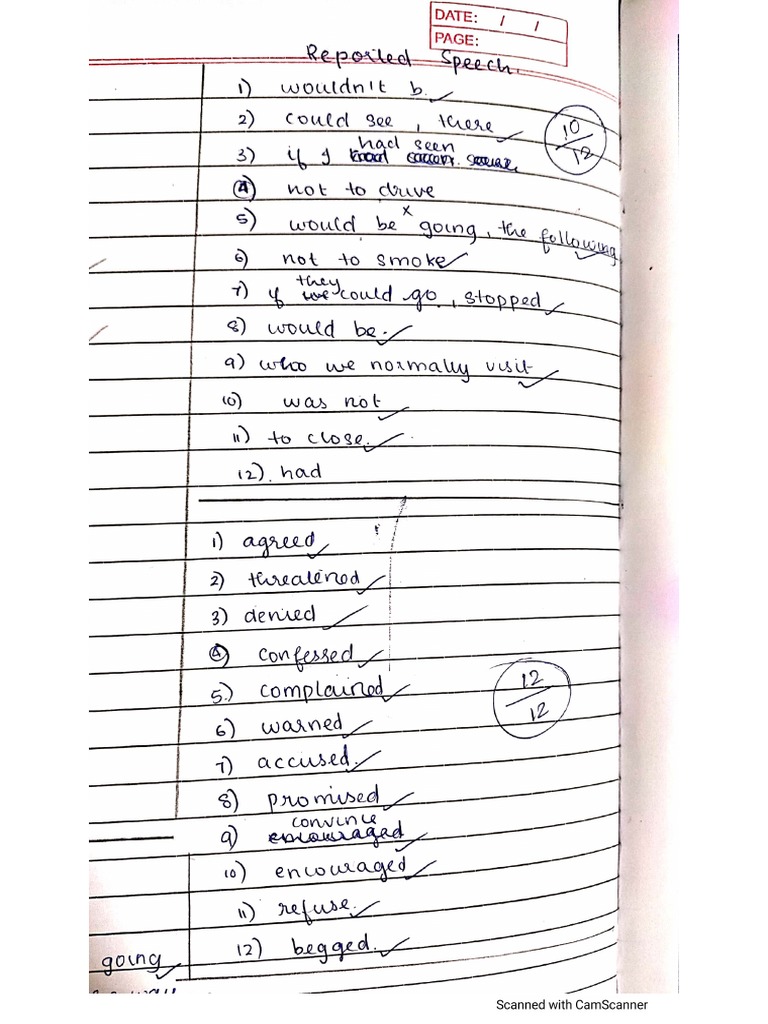 DATE: / /
PAGE:
Reported Speech.
1) wouldn't b.
2) could see, there
10/12
had seen
3) if I
4) not to drive
5) would be going, the following
6) not to smoke
they
7) if we could go, stopped
8) would be.
9) who we normally visit
10) was not
11) to close.
12). had
1) agreed
2) threatened
3) denied
4) confessed
5.) complained
12/12
6) warned
7) accused.
8) promised
convince
9) encouraged
10) encouraged
11) refuse.
12) begged.
going
Scanned with CamScanner